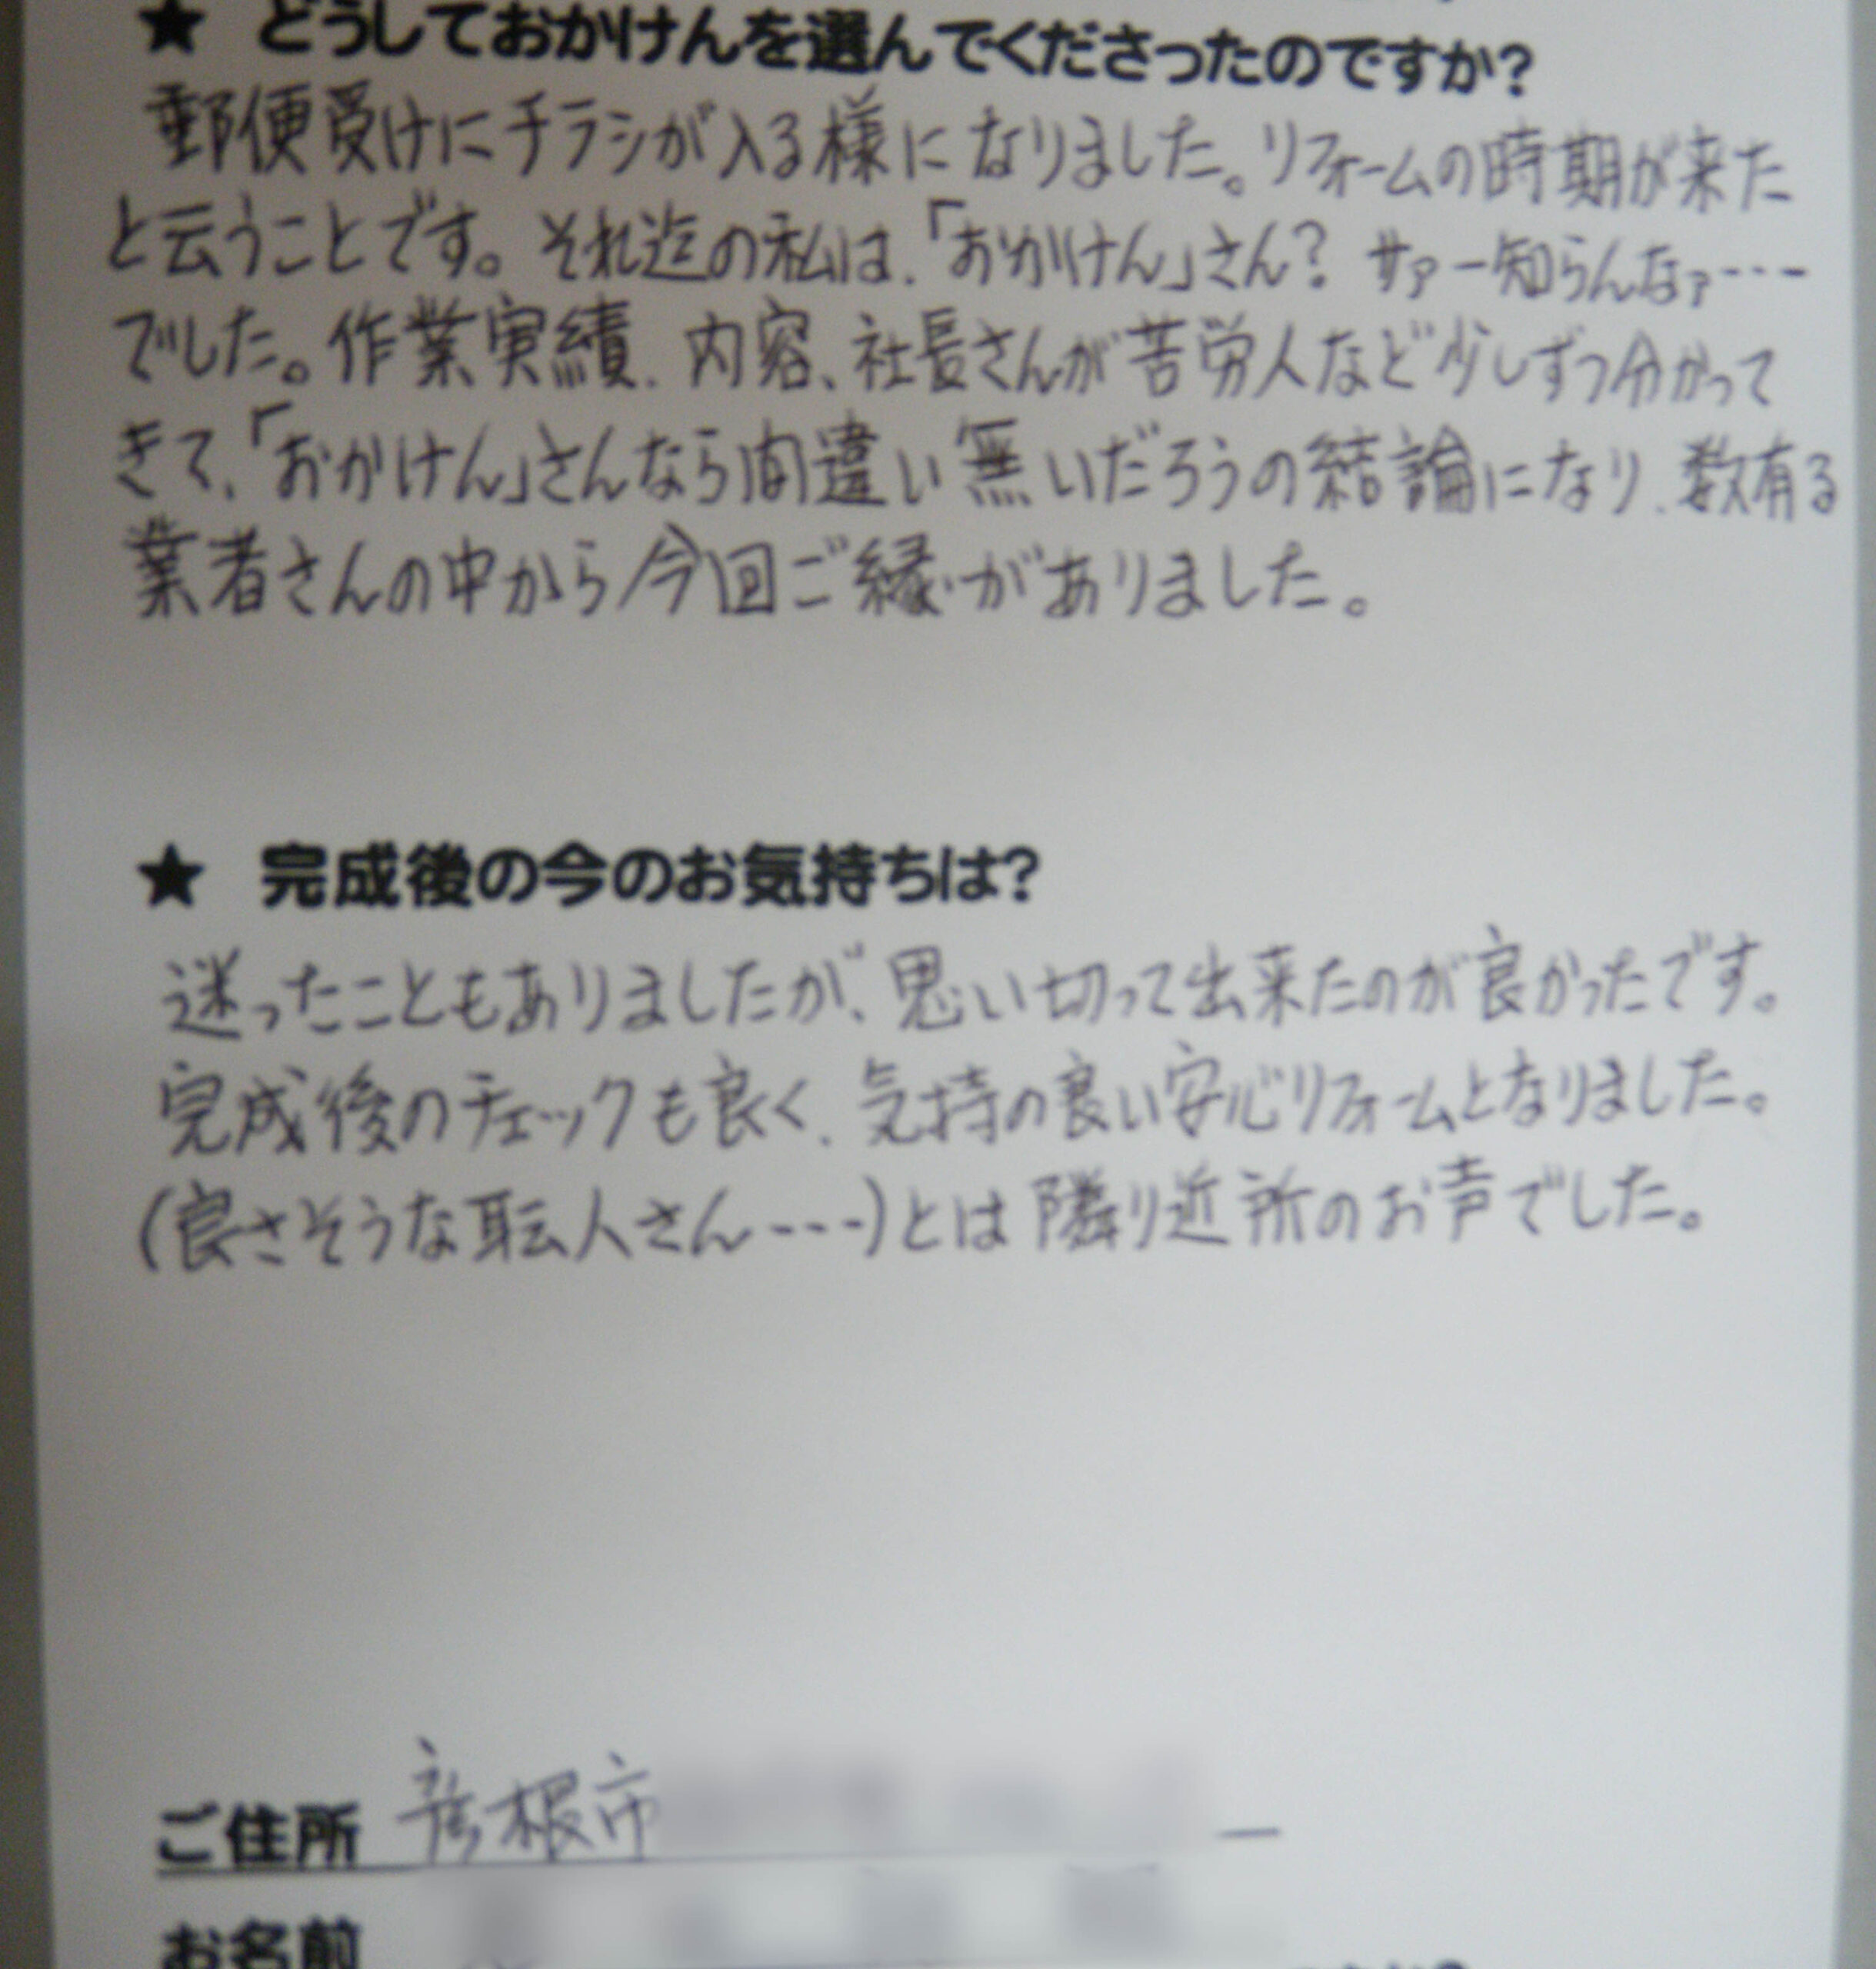 ★ どうしておかけんを選んでくださったのですか?
郵便受けにチラシが入る様になりました。リフォームの時期が来た
と云うことです。それ迄の私は、「おかけん」さん? サァー知らんなァ----
でした。作業実績、内容、社長さんが苦労人など少しずつ分かって
きて、「おかけん」さんなら間違い無いだろうの結論になり、数有る
業者さんの中から今回ご縁がありました。
★ 完成後の今のお気持ちは?
迷ったこともありましたが、思い切って出来たのが良かったです。
完成後のチェックも良く、気持の良い安心リフォームとなりました。
(良さそうな耺人さん----)とは隣り近所のお声でした。
ご住所 彦根市
お名前